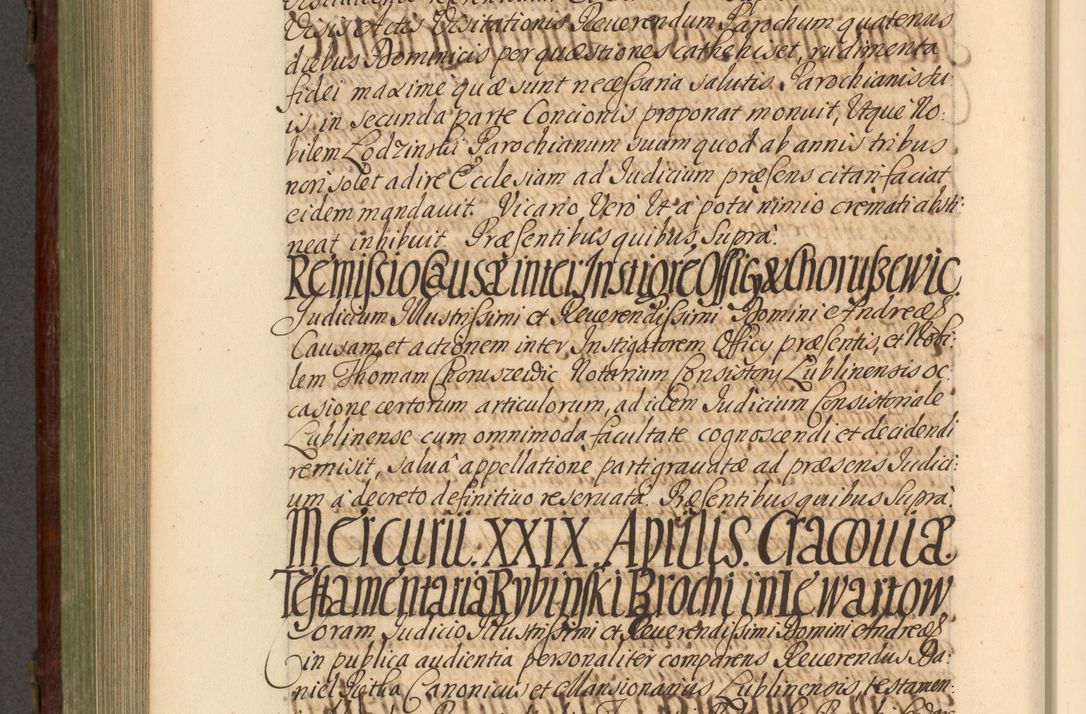 Visis Actis Visitationis Reuerendum Parochum quatenus
diebus Dominicis per quæstiones cathehiset, rudimenta
fidei maxime quæ sunt necessaria salutis Parochianis su
is, in secunda parte Concionis proponat monuit, Utque No:
bilem Lodzinski Parochianum suum quod ab annis tribus
non solet adire Ecclesiam ad Judicium præsens citari faciat
eidem mandauit. Vicario Vero Ut a potu nimio cremati absti:
neat inhibuit. Præsentibus quibus Supra.
Remissio Causæ inter Instigore Officy & Choruszewic.
Judicium Illustrissimi et Reuerendissimi Domini Andreæ
Causam et actionem inter Instigatorem Officy præsentis, et Nobi:
lem Thomam Choruszewic Notarium Consistory Lublinensis oc:
casione certorum articulorum, ad idem Judicium Consistoriale
Lublinense cum omnimoda facultate cognoscendi et decidendi
remisit, salua appellatione parti grauatæ ad præsens Judici:
um a decreto definitiuo reseruata. Præsentibus quibus Supra.
Mercurii. XXIX. Aprilis. Cracouiæ.
Testamentaria Rybinski Parochi in Lewartow
Coram Judicio Illustrissimi et Reuerendissimi Domini Andreæ
in publica audientia personaliter comparens Reuerendus Da:
niel Canonicus et Mansionarius Lublinensis, testamen: